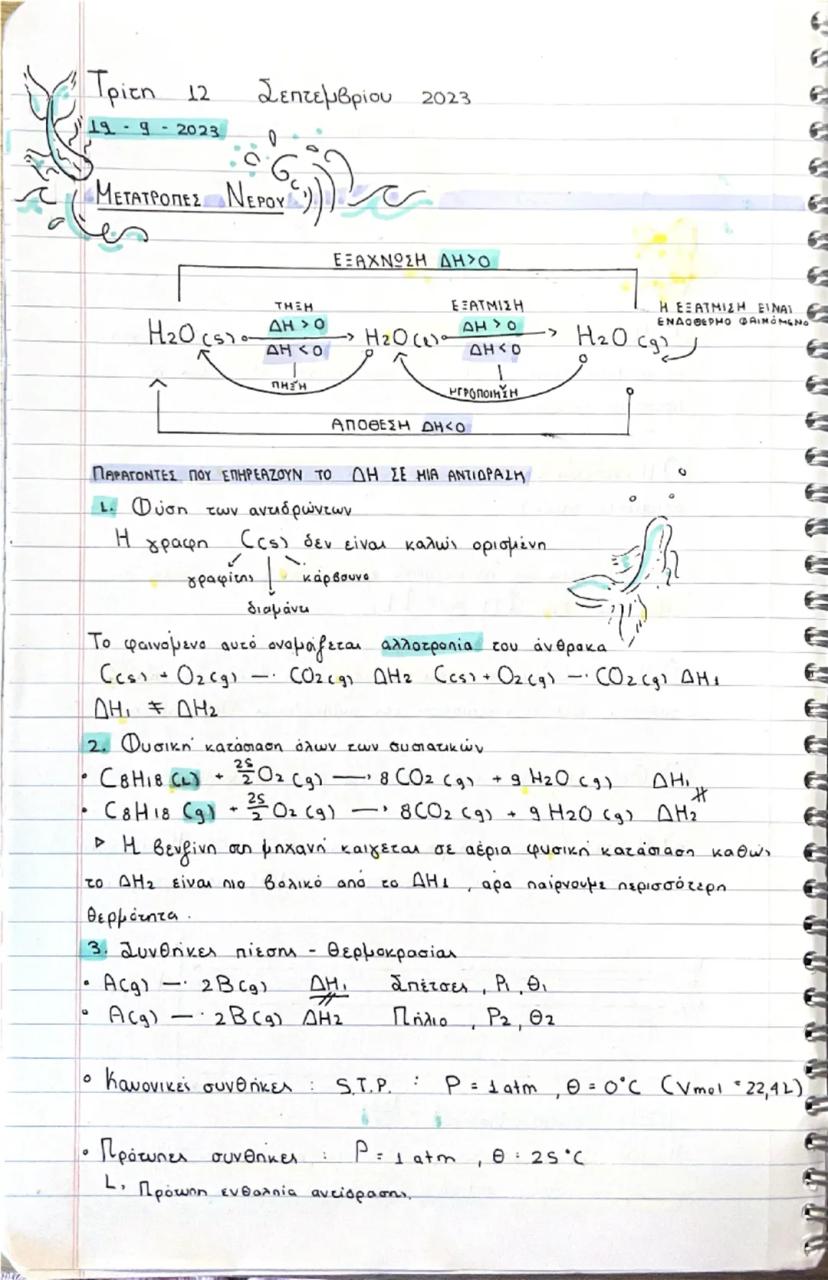 Τρίτη 12 Σεπτεμβρίου 2023
19 - 9 - 2023
ΜΕΤΑΤΡΟΠΕΣ ΝΕΡΟΥ
ΕΞΑΧΝΩΣΗ ΔΗ>0
ΤΗΞΗ ΕΞΑΤΜΙΣΗ Η ΕΞΑΤΜΙΣΗ ΕΙΝΑΙ
ΔΗ > 0 ΔΗ > 0 ΕΝΔΟΘΕΡΜΟ ΦΑΙΝΟΜΕΝΟ
H2O (s) H2O (l) H2O (g)
ΔΗ < 0 ΔΗ < 0
ΠΗΞΗ ΥΓΡΟΠΟΙΗΣΗ
ΑΠΟΘΕΣΗ ΔΗ<0
ΠΑΡΑΓΟΝΤΕΣ ΠΟΥ ΕΠΗΡΕΑΖΟΥΝ ΤΟ ΔΗ ΣΕ ΜΙΑ ΑΝΤΙΔΡΑΣΗ
1. Φύση των αντιδρώντων
Η γραφη C(s) δεν είναι καλώς ορισμένη
γραφίτης κάρβουνο
διαμάντι
Το φαινόμενο αυτό ονομάζεται αλλοτροπία του άνθρακα
C(s) + O2(g) → CO2(g) ΔΗ2 C(s) + O2(g) → CO2(g) ΔΗ1
ΔΗ1 ≠ ΔΗ2
2. Φυσική κατάσταση όλων των συστατικών
• C8H18 (L) + 25/2 O2 (g) → 8 CO2 (g) + 9 H2O (g) ΔΗ1
≠
• C8H18 (g) + 25/2 O2 (g) → 8CO2 (g) + 9 H2O (g) ΔΗ2
▷ Η βενζίνη στη μηχανή καίγεται σε αέρια φυσική κατάσταση καθώς
το ΔΗ2 είναι πιο βολικό από το ΔΗ1, αρα παίρνουμε περισσότερη
θερμότητα.
3. Συνθήκες πίεσης - θερμοκρασίας
• A(g) → 2B(g) ΔΗ1 Σπέτσες, P1, θ1
≠
• A(g) → 2B(g) ΔΗ2 Πήλιο, P2, θ2
• Κανονικές συνθήκες : S.T.P. : P = 1 atm, θ = 0°C (Vmol = 22,4L)
• Πρότυπες συνθήκες : P = 1 atm, θ = 25°C
↳ Πρότυπη ενθαλπία αντίδρασης.